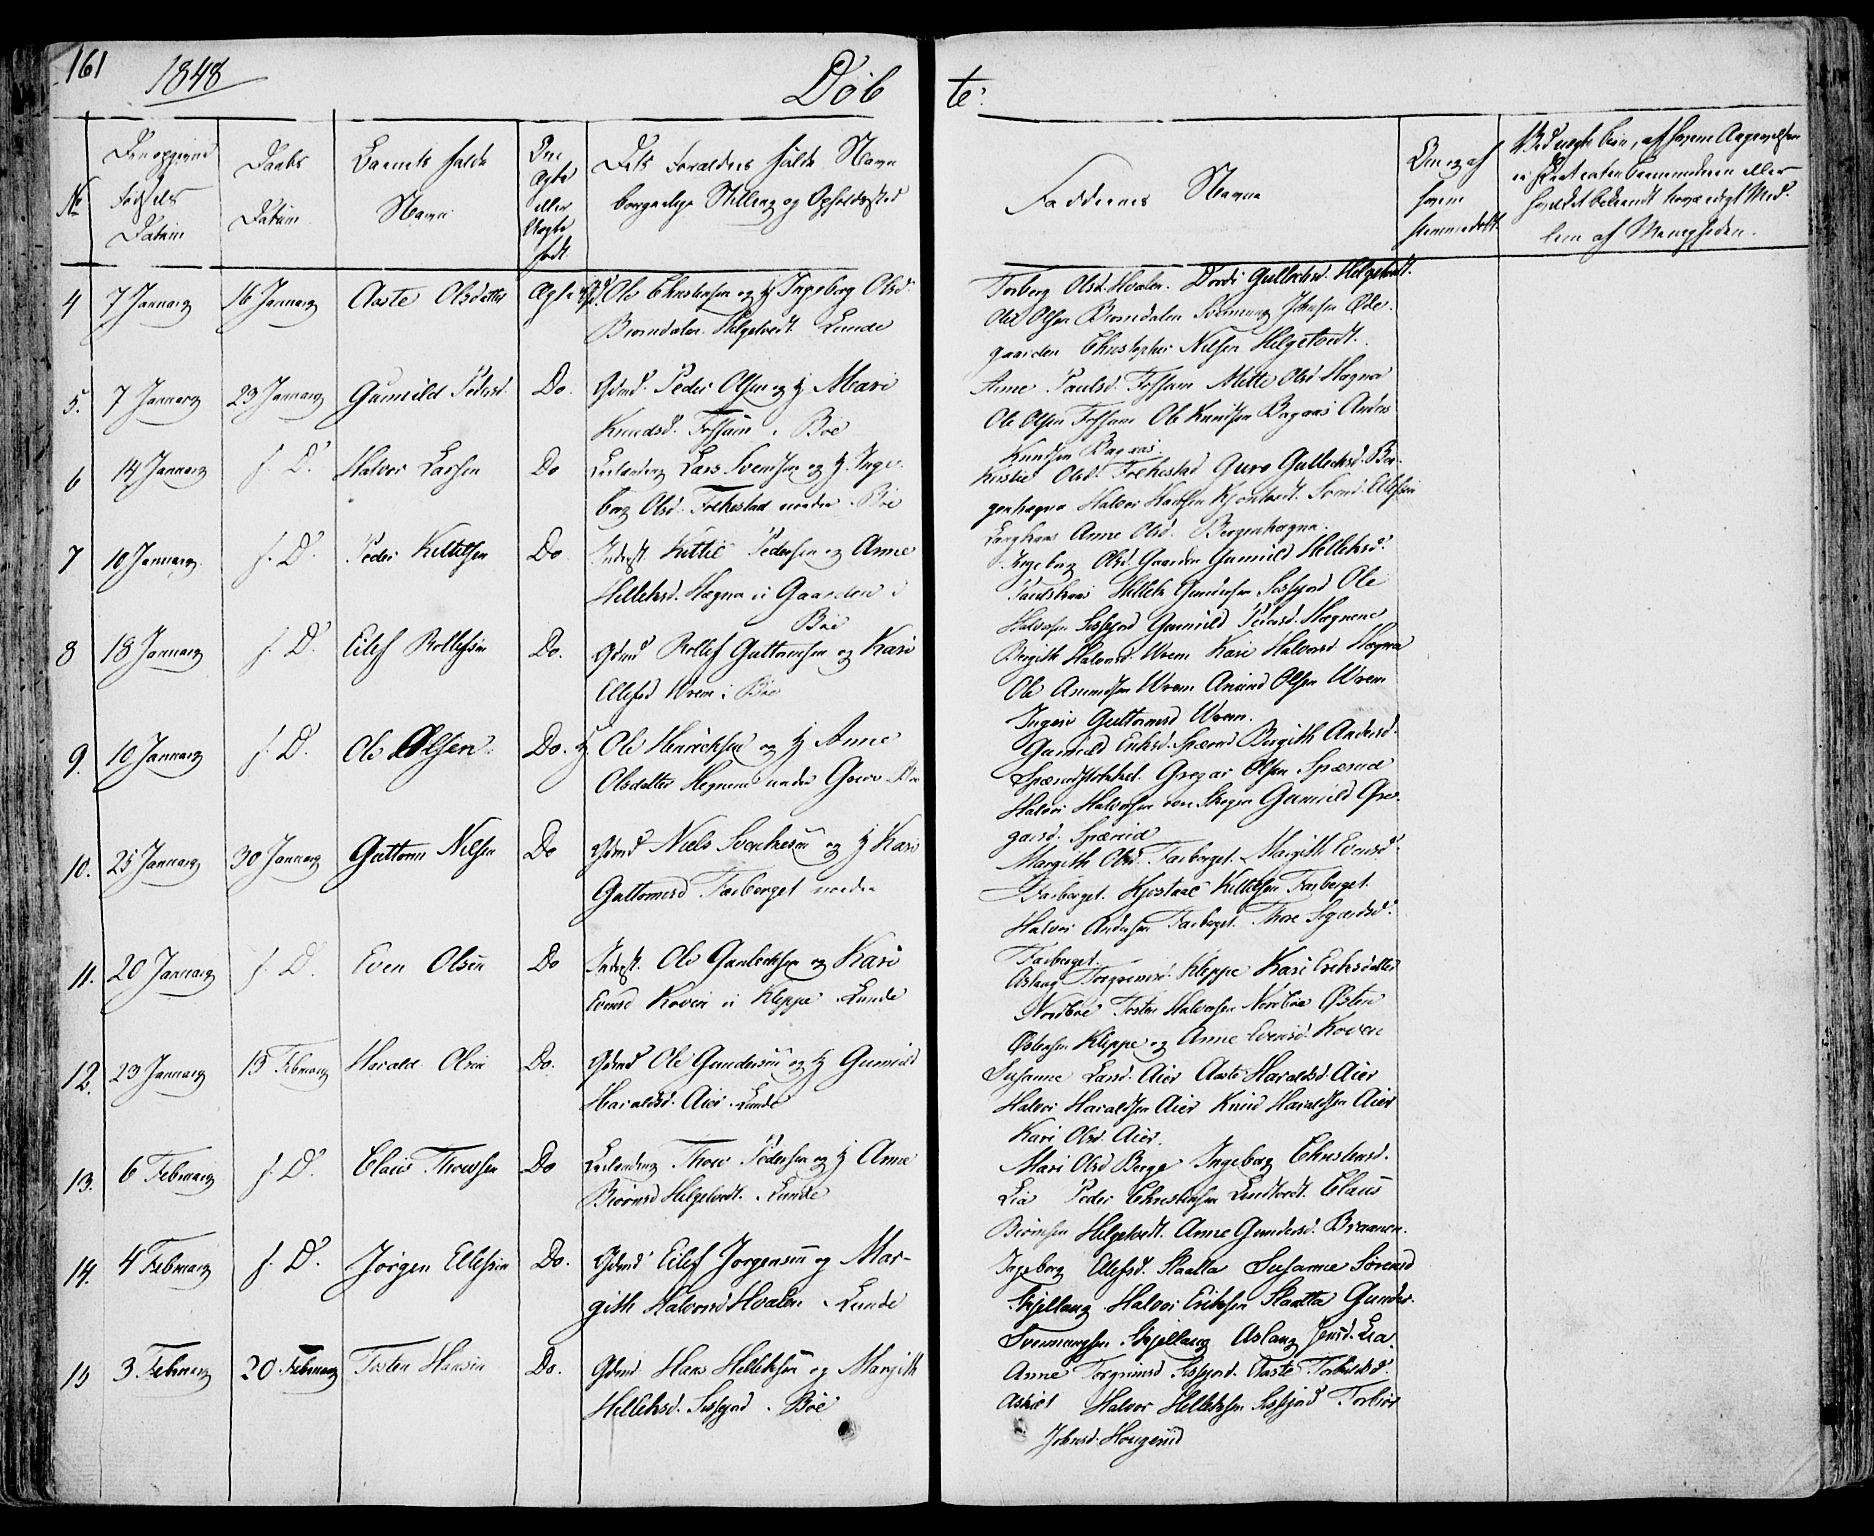 161
1848
Døb
te.
No
Den opgivne Fødsels Datum
Daabs Datum
Barnets fulde Navn
Om Ægte eller Uægte født
Dets Forældres fulde Navn
borgerlige Stilling og Opholdssted
Faddernes Navne
4 7 Januarii 16 Januarii Aaste Olsdatter Ægte Ole Christensen og H Ingeborg Olsd.
Biorndalen Helgetvedt. Lunde
Torberg Olsd. Hvalen. Dordi Gullechsd. Helgetvedt.
Ole Olsen Biorndalen Johnsen Øde-
gaarden Christopher Nilsen Helgetvedt.
5. 7 Januarii 23 Januarii Gunild Pedersd. Do. Gdmd. Peder Olsen og H Mari
Knudsd. Fossum i Bøe
Anne Paulsd. Fossum Mette Olsd. Hægna
Ole Olsen Fossum Ole Knudsen Bagaas Anders
Knudsen Bagaas.
6 14 Januarii s. D. Halvor Larsen Do Leilending Lars Svendsen og H. Inge-
borg Olsd. Folkestad nordre. Bøe
Kirstie Olsd. Folkestad Guro Gullechsd. Ber-
genhægna Halvor Hansen Svend Ellefsen
Langkaas Anne Olsd. Bergenhægna.
7 10 Januarii s. D. Peder Kittilsen Do Inderst. Kittil Pedersen og Anne
Helleksd. Hægna u Gaarden i
Bøe
Ingeborg Olsd. Gaarden Gunild Helleksd.
Hellek Gundersen Sisjord Ole
Halvorsen Sisjord Gunild Pedersd. Hægnene
8 18 Januarii s. D. Eilef Rollefsen Do. Gdmd Rollef Guttormsen og Kari
Ellefsd Wrem i Bøe
Bergith Halvorsd. Wrem Kari Halvorsd Hægna
Ole Amundsen Wrem Anund Olsen Wrem
Ingeri Guttormsd Wrem.
9. 10 Januarii s. D. Ole Olsen. Do. H Ole Henrichsen og H Anne
Olsdatter Hegnene under Gorv Bøe
Gunild Eriksd. Spærud Bergith Andersd.
Spærudstokket. Gregar Olsen Spærud
Halvor Halvorsen Gunild Gre-
garsd. Spærud
10. 25 Januarii 30 Januarii Guttorm Nilsen Do Gdmd Niels Svenkesen og H Kari
Guttormsd Farberget nordre
Margith Olsd. Farberget. Margith Evensd.
Farberget. Kjøstaal Kittilsen Farberget.
Halvor Andersen Farberget. Thore Sigurdsd.
Farberget.
11. 20 Januarii s. D. Even Olsen Do Inderst. Ole Gunlechsen og Kari
Evensd Koven u Kleppe. Lunde
Aslaug Torgrimsd. Kleppe Kari Eriksdatter
Nordbøe Tosten Halvorsen Nordbøe Østen
Østensen Kleppe og Anne Evensd. Koven
12. 23 Januarii 13 Februarii Harald Olsen Do. Gdmd Ole Gundersen og H Gunild
Haraldsd. Aier. Lunde
Susanne Larsd. Aier Aaste Haraldsd. Aier
Halvor Haraldsen Aier Knud Haraldsen Aier
Kari Olsd. Aier.
13. 6 Februarii s. D. Claus Thovsen Do Leilending Thov Pedersen og H Anne
Biornsd Helgetvedt. Lunde
Mari Olsd Berge Ingeborg Christensd.
Lia Peder Christensen Claus
Biornsen Helgetvedt. Anne Gundersd. Braanen.
14. 4 Februarii s. D. Jørgen Ellefsen Do. Gdmd Eilef Jørgensen og Mar-
gith Halvorsd Hvalen. Lunde
Ingeborg Ellefsd. Slaatta Susanne Sørensd
Skjellaug Halvor Eriksen Slaatta Gunder
Svennungsen Skjellaug Aslaug Jensd. Lia.
15 3 Februarii 20 Februarii Tosten Hansen Do. Gdmd. Hans Helleksen og Margith
Helleksd. Sisjord. Bøe
Anne Torgrimsd Sisjord. Aaste Torbiørnsd.
Halvor Helleksen Sisjord Torbiør
Johnsd. Haugerud